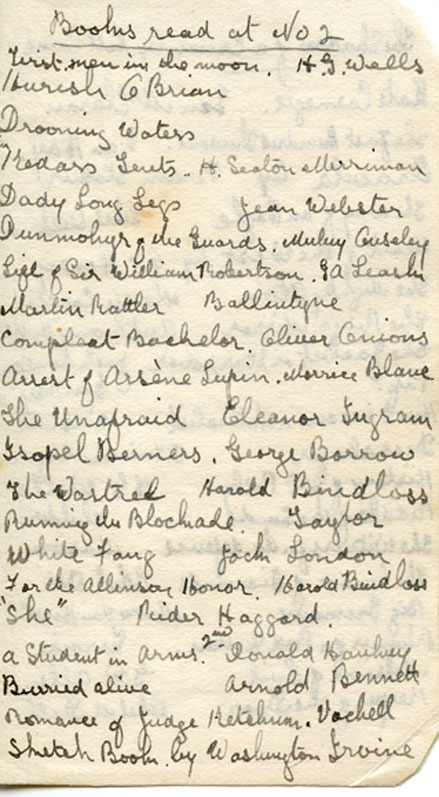 Books read at No 2
First men in the moon. H.G. Wells
Hurish O'Brian
Drooning Waters
Kedars Tents. H. Seaton Merriman
Dady Long Legs Jean Webster
of the Guards.
Life of Sir William Robertson. GA Leask
Martin Rattler Ballintyne
Complaat Bachelor. Oliver Onions
Arrest of Arsène Lupin. Morrice Blanc
The Unafraid Eleanor Ingram
Isopel Berners. George Borrow
The Wastrel Harold Bindloss
Running the Blockade Taylor
White Fang Jack London
For the Allinson Honor. Harold Bindloss
"She" Rider Haggard.
a Student in Arms. 2nd Donald Hankey
Burried alive Arnold Bennett
Romance of Judge Ketchum. Vachell
Sketch Book. by Washington Irvine